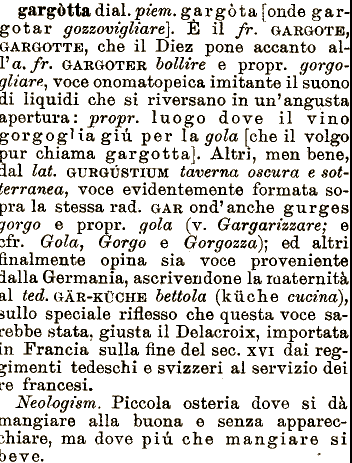 gargòtta dial. piem. gargòta [onde gar-
gotar gozzovigliare]. È il fr. GARGOTE,
GARGOTTE, che il Diez pone accanto al-
l'a. fr. GARGOTER bollire e propr. gorgo-
gliare, voce onomatopeica imitante il suono
di liquidi che si riversano in un'angusta
apertura: propr. luogo dove il vino
gorgoglia giú per la gola [che il volgo
pur chiama gargotta]. Altri, men bene,
dal lat. GURGÚSTIUM taverna oscura e sot-
terranea, voce evidentemente formata so-
pra la stessa rad. GAR ond'anche gurges
gorgo e propr. gola (v. Gargarizzare; e
cfr. Gola, Gorgo e Gorgozza); ed altri
finalmente opina sia voce proveniente
dalla Germania, ascrivendone la maternità
al ted. GÄR-KÜCHE bettola (küche cucina),
sullo speciale riflesso che questa voce sa-
rebbe stata, giusta il Delacroix, importata
in Francia sulla fine del sec. XVI dai reg-
gimenti tedeschi e svizzeri al servizio dei
re francesi.
Neologism. Piccola osteria dove si dà
mangiare alla buona e senza apparec-
chiare, ma dove piú che mangiare si
beve.